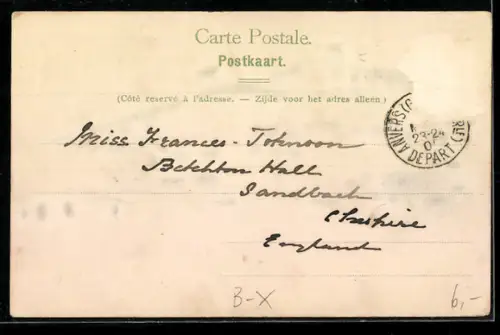 Carte Postale.
Postkaart.
(Côté réservé à l'adresse. — Zijde voor het adres alleen)
ANVERS
23-24
DEPART
Miss Frances Johnson
Betchton Hall
Sandbach
Cheshire
England
B-X
6,-